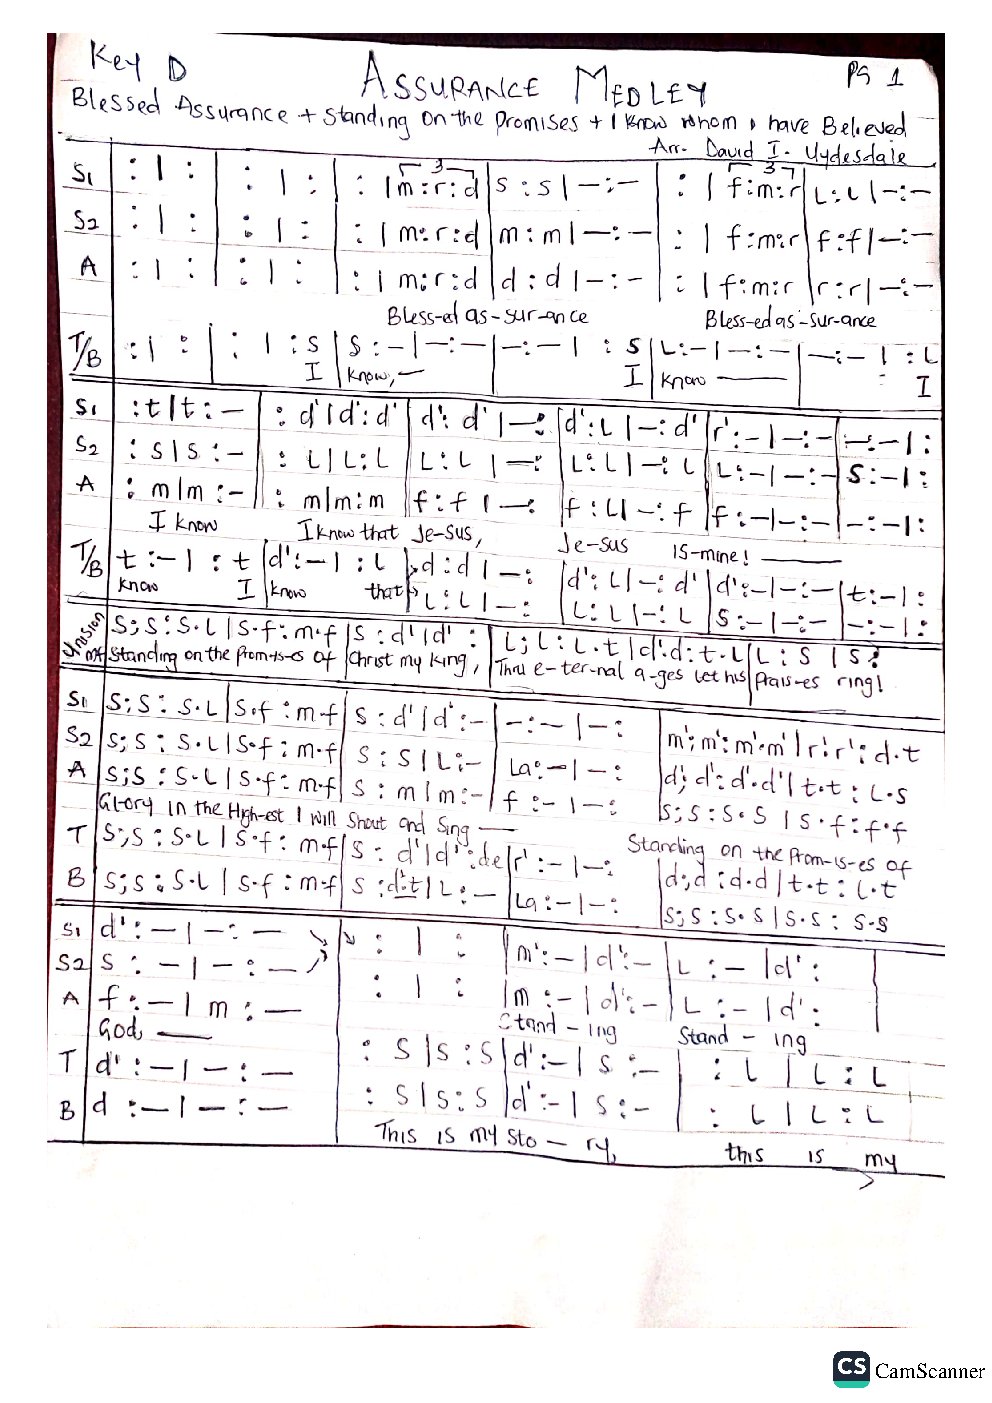 Key D
ASSURANCE MEDLEY
Pg 1
Blessed Assurance + Standing On the Promises + I Know whom I have Believed
Arr. David I. Clydesdale
S1 : | : | : | : | : | m:r:d | s : s | – : – | : | f:m:r | L : L | – : –
3 3
S2 : | : | : | : | : | m:r:d | m : m | – : – | : | f:m:r | f : f | – : –
A : | : | : | : | : | m:r:d | d : d | – : – | : | f:m:r | r : r | – : –
Bless-ed as-sur-ance Bless-ed as-sur-ance
T/B : | : | : | : s | s : – | – : – | – : – | : s | L : – | – : – | – : – | : L
I know, — I know —— I
S1 : t | t : – | : d' | d' : d' | d' : d' | – : | d' : L | – : d' | r' : – | – : – | – : – | :
S2 : s | s : – | : L | L : L | L : L | – : | L : L | – : L | L : – | – : – | s : – | :
A : m | m : – | : m | m : m | f : f | – : | f : L | – : f | f : – | – : – | – : – | :
I know I know that Je-sus, Je-sus is-mine! ——
T/B t : – | : t | d' : – | : L | d : d | – : | d' : L | – : d' | d' : – | – : – | t : – | :
L : L | – : | L : L | – : L | s : – | – : – | – : – | :
know I know that
Unision
mf
s ; s : s . L | s . f : m . f | s : d' | d' : | L ; L : L . t | d' : d : t . L | L : s | s :
Standing on the Prom-is-es of Christ my King, Thru e-ter-nal a-ges Let his Prais-es ring!
S1 s ; s : s . L | s . f : m . f | s : d' | d' : – | – : – | – : | m' ; m' : m' . m' | r' . r' : d . t
S2 s ; s : s . L | s . f : m . f | s : s | L : – | La : – | – : | d' ; d' : d' . d' | t . t : L . s
A s ; s : s . L | s . f : m . f | s : m | m : – | f : – | – : | s ; s : s . s | s . f : f . f
Glory in the High-est I will Shout and Sing —— Standing on the Prom-is-es of
T s ; s : s . L | s . f : m . f | s : d' | d' : de | r' : – | – : | d ; d : d . d | t . t : L . t
B s ; s : s . L | s . f : m . f | s : d . t | L : – | La : – | – : | s ; s : s . s | s . s : s . s
S1 d' : – | – : – | : | : | m' : – | d' : – | L : – | d' :
S2 s : – | – : –
A f : – | m : – | : | : | m : – | d' : – | L : – | d' :
God, —— Stand - ing Stand - ing
T d' : – | – : – | : s | s : s | d' : – | s : – | : L | L : L
B d : – | – : – | : s | s : s | d' : – | s : – | : L | L : L
This is my sto — ry, this is my
CS CamScanner